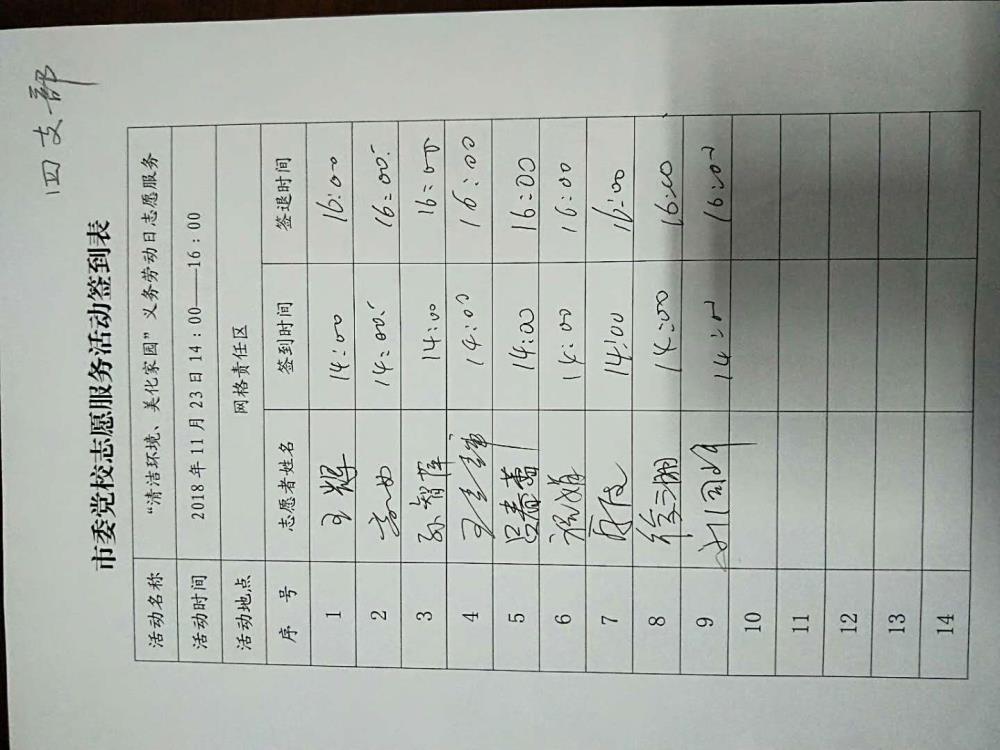 四支部
市委党校志愿服务活动签到表
活动名称 “清洁环境、美化家园”义务劳动日志愿服务
活动时间 2018年11月23日14:00——16:00
活动地点 网格责任区
序 号 志愿者姓名 签到时间 签退时间
1 王辉 14:00 16:00
2 14:00 16:00
3 孙智萍 14:00 16:00
4 14:00 16:00
5 吕春蕾 14:00 16:00
6 14:00 16:00
7 14:00 16:00
8 徐立朋 14:00 16:00
9 14:00 16:00
10
11
12
13
14